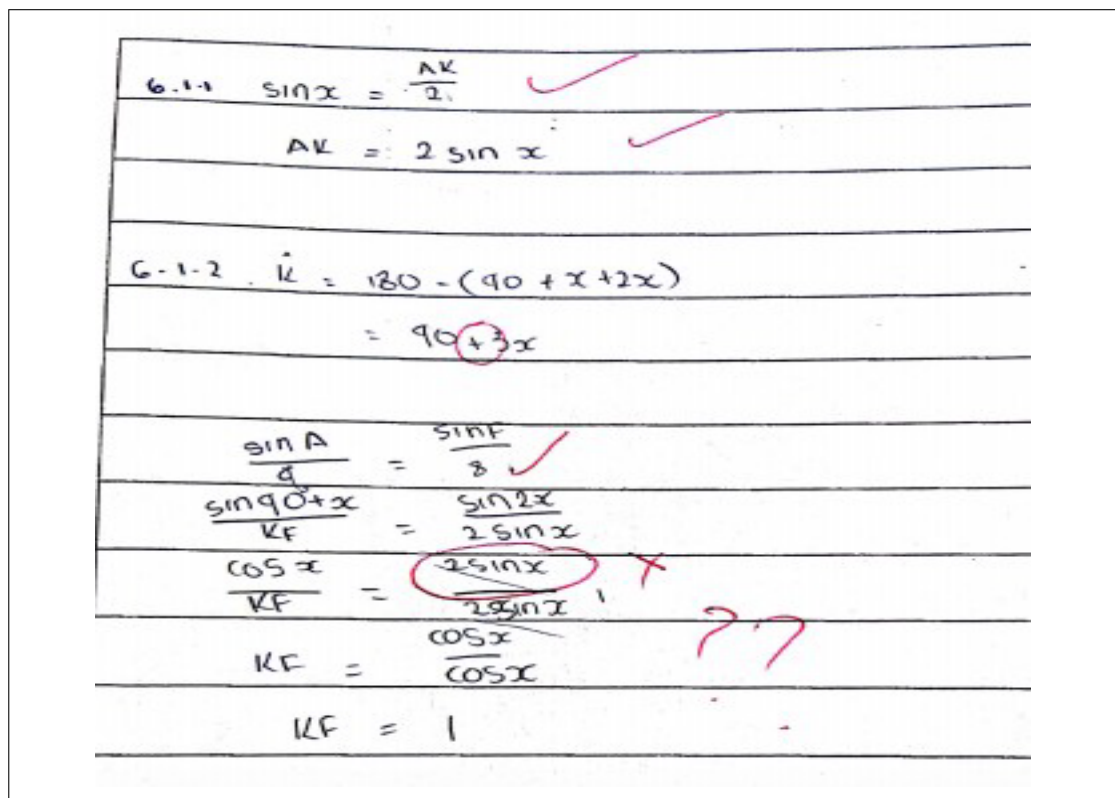 6.1.1 sinx = AK/2
AK = 2 sin x
6.1.2. K̂ = 180 - (90 + x + 2x)
= 90 + 3x
sin A/a = sin F/8
sin 90 + x/KF = sin 2x/2 sin x
cos x/KF = 2 sin x/2 sin x
KF = cos x/cos x
??
KF = 1